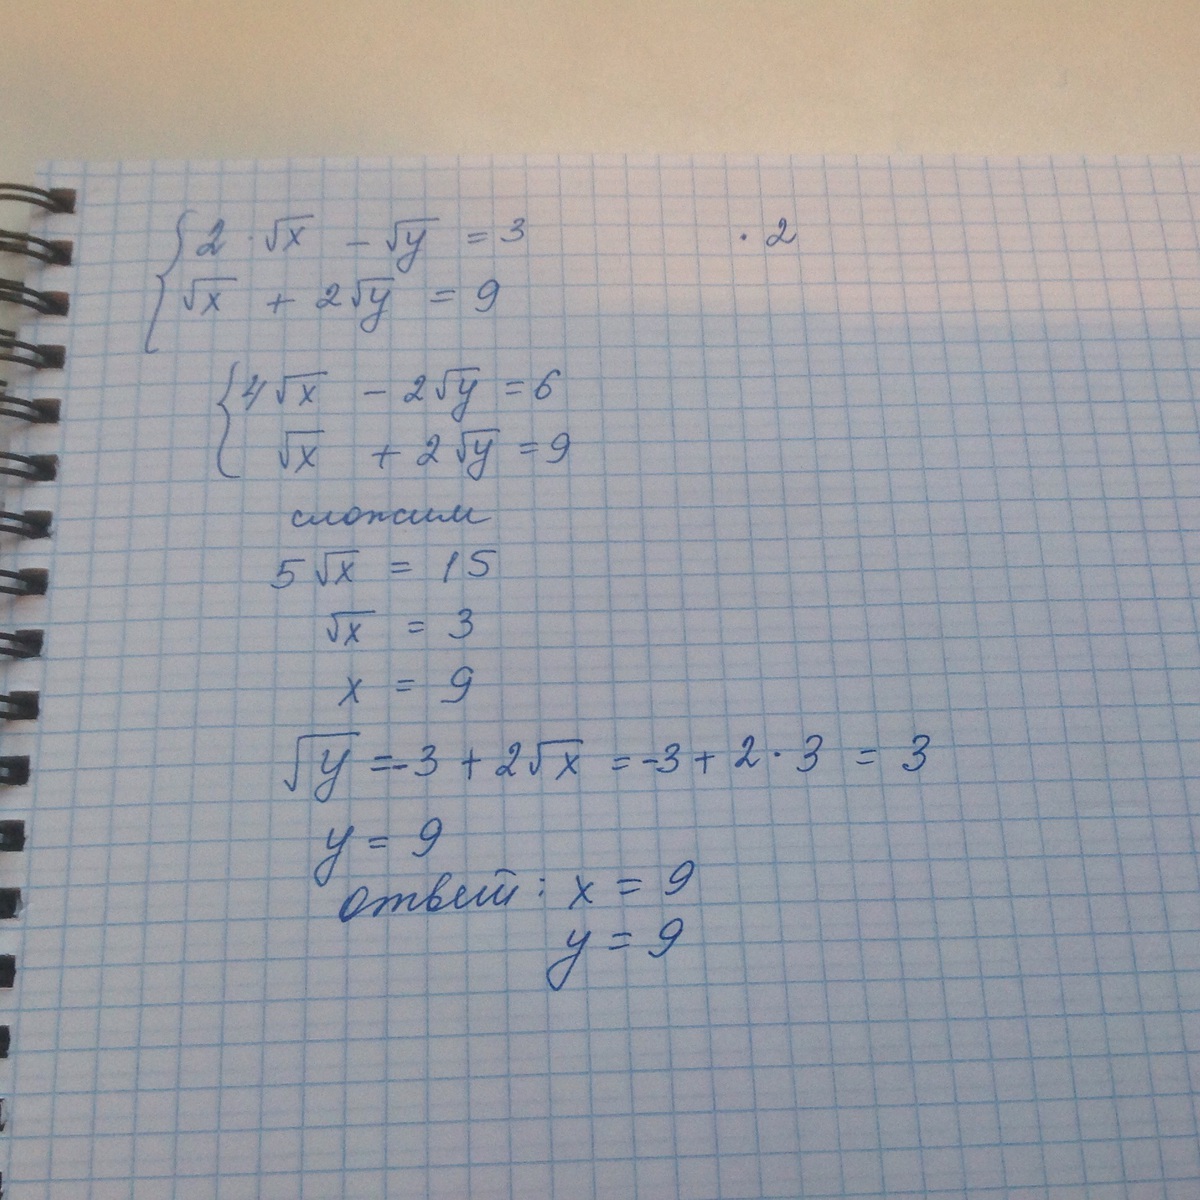 2 · √x - √y = 3 · 2
√x + 2√y = 9
4√x - 2√y = 6
√x + 2√y = 9
сложим
5√x = 15
√x = 3
x = 9
√y = -3 + 2√x = -3 + 2 · 3 = 3
y = 9
ответ: x = 9
y = 9